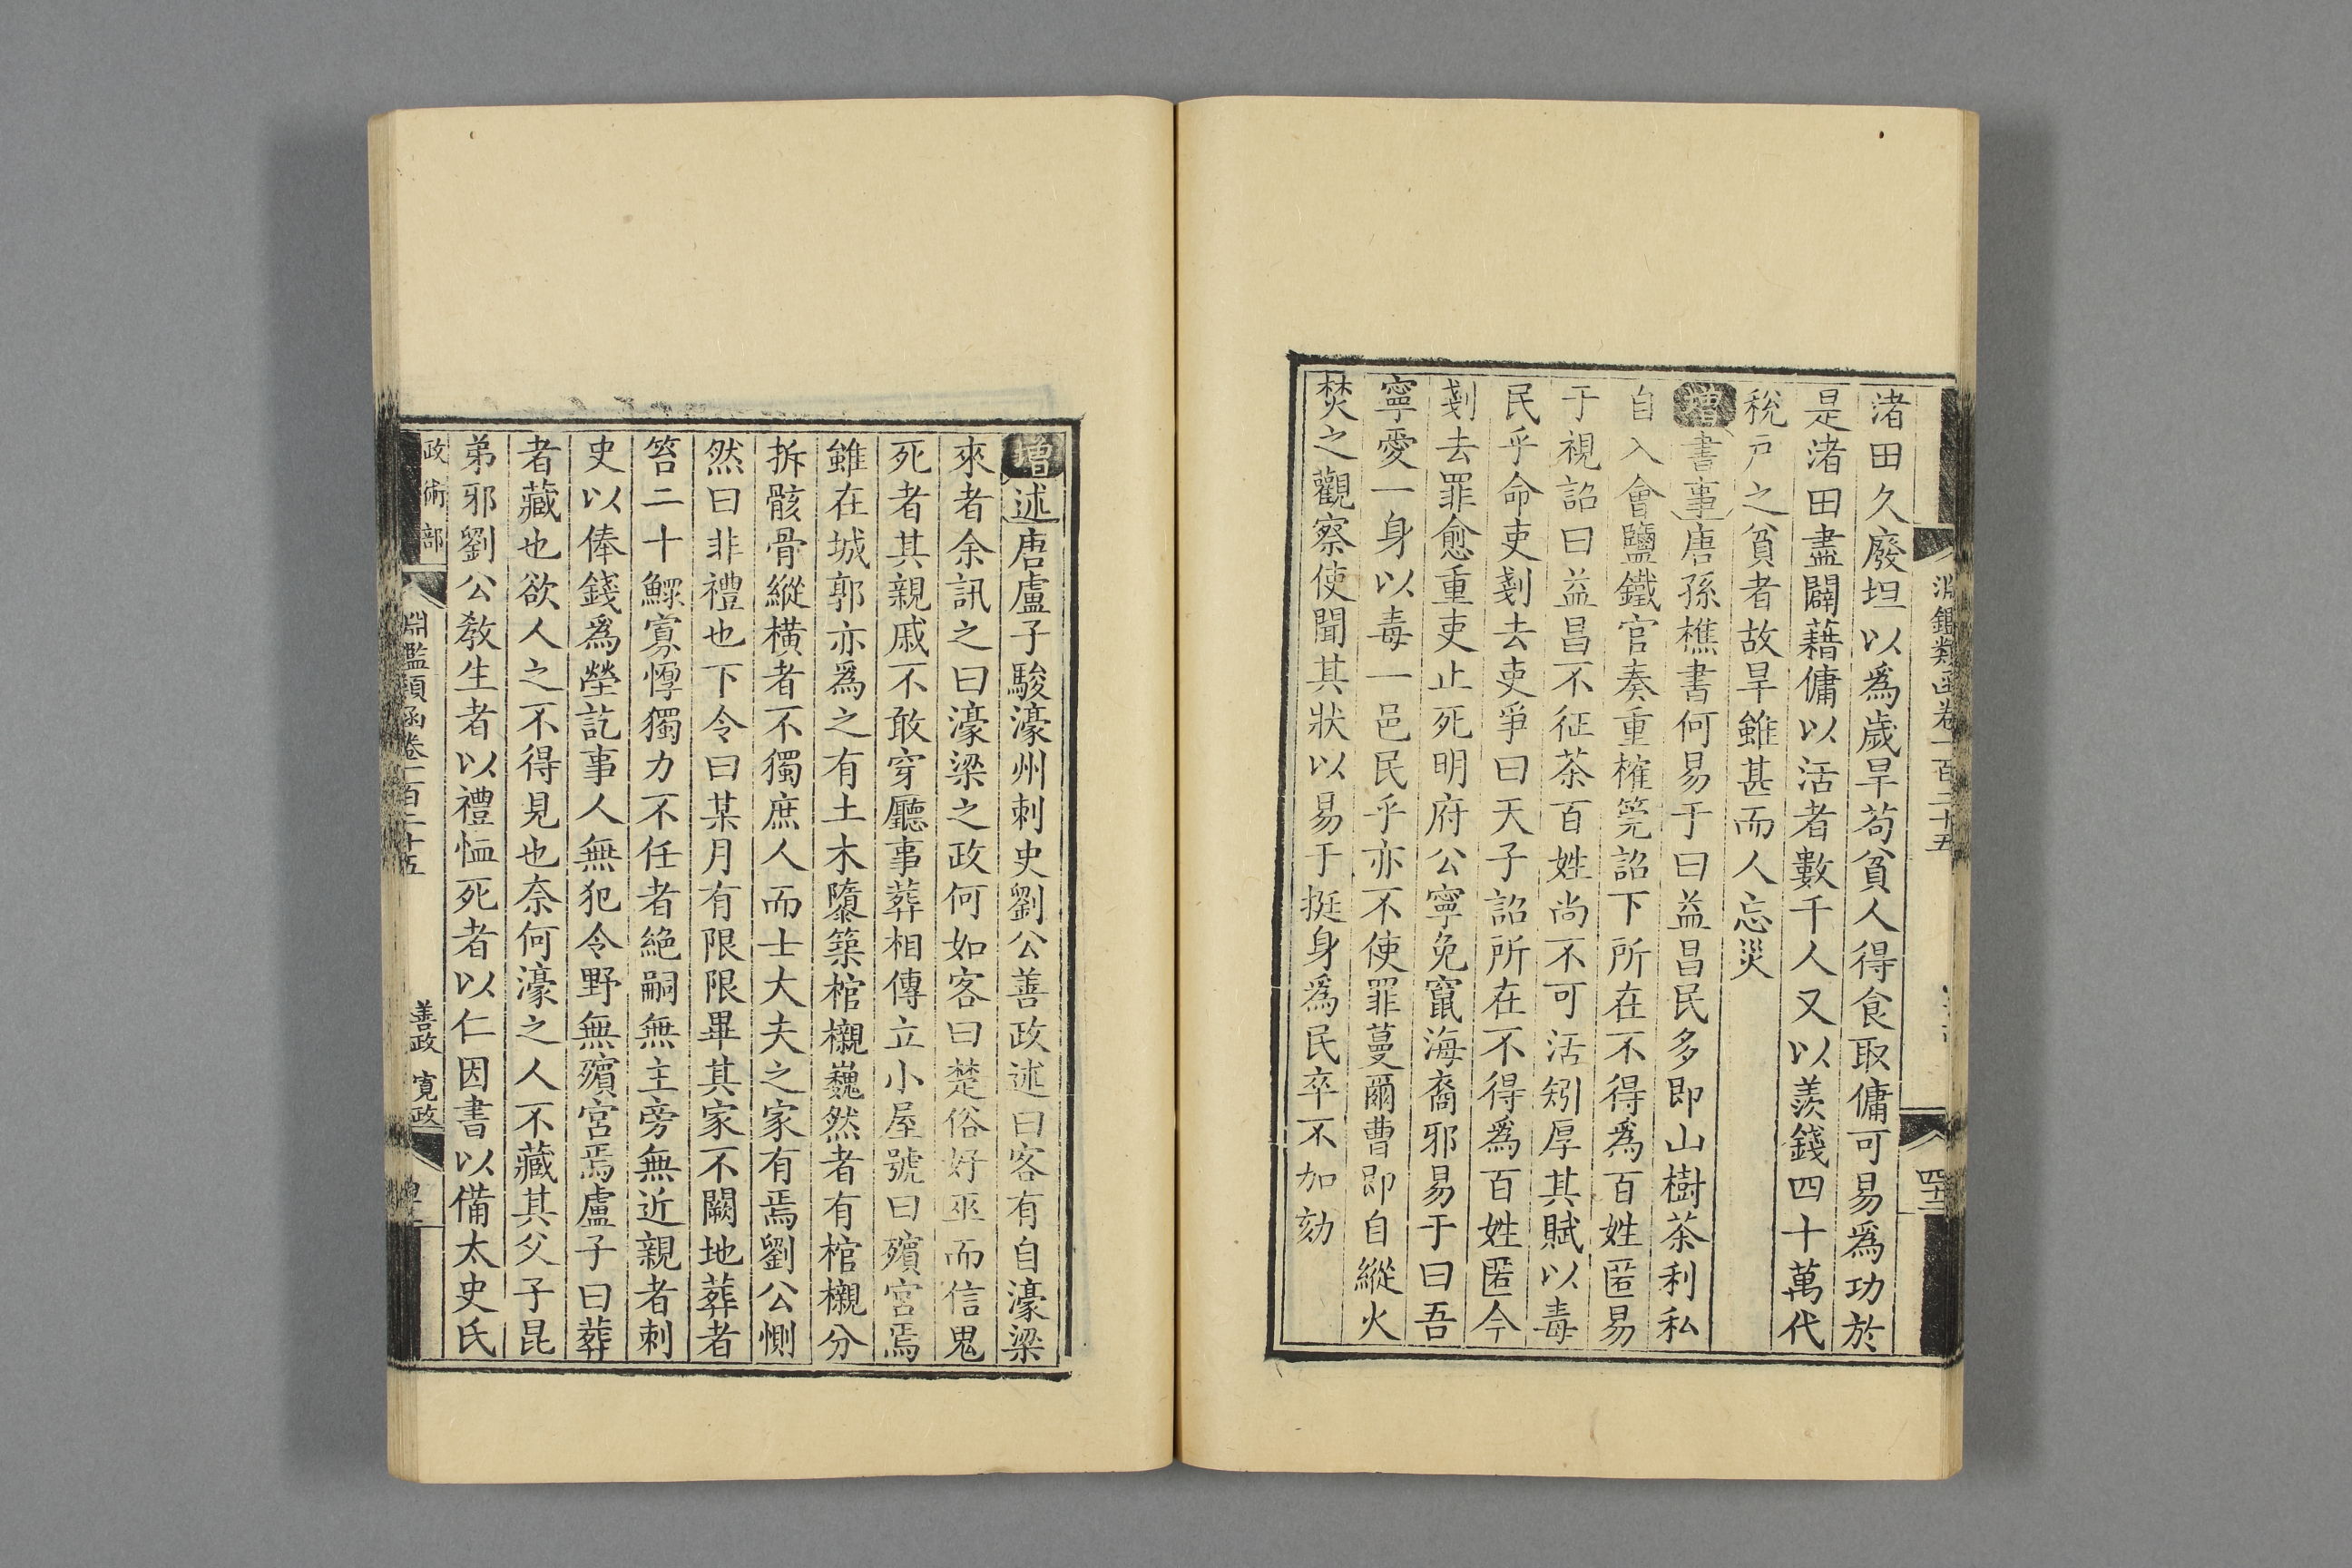 渚田久廢坦以爲歲旱苟貧人得食取傭可易爲功於
是渚田盡闢藉傭以活者數千人又以羨錢四十萬代
稅戸之貧者故旱雖甚而人忘災
增書事唐孫樵書何易于曰益昌民多即山樹茶利私
自入會鹽鐵官奏重榷筦詔下所在不得爲百姓匿易
于視詔曰益昌不征茶百姓尚不可活矧厚其賦以毒
民乎命吏剗去吏爭曰天子詔所在不得爲百姓匿今
剗去罪愈重吏止死明府公寧免竄海裔邪易于曰吾
寧愛一身以毒一邑民乎亦不使罪蔓爾曹即自縱火
焚之觀察使聞其狀以易于挺身爲民卒不加劾
淵鑑類函卷一百二十五
增述唐盧子駿濠州刺史劉公善政述曰客有自濠梁
來者余訊之曰濠梁之政何如客曰楚俗好巫而信鬼
死者其親戚不敢穿廳事葬相傳立小屋號曰殯宮焉
雖在城郭亦爲之有土木隳築棺櫬巍然者有棺櫬分
拆骸骨縱橫者不獨庶人而士大夫之家有焉劉公惻
然曰非禮也下令曰某月有限限畢其家不闕地葬者
笞二十鰥寡惸獨力不任者絕嗣無主旁無近親者刺
史以俸錢爲塋訖事人無犯令野無殯宮焉盧子曰葬
者藏也欲人之不得見也奈何濠之人不藏其父子昆
弟邪劉公教生者以禮恤死者以仁因書以備太史氏
政術部 淵鑑類函卷一百二十五 善政 寬政